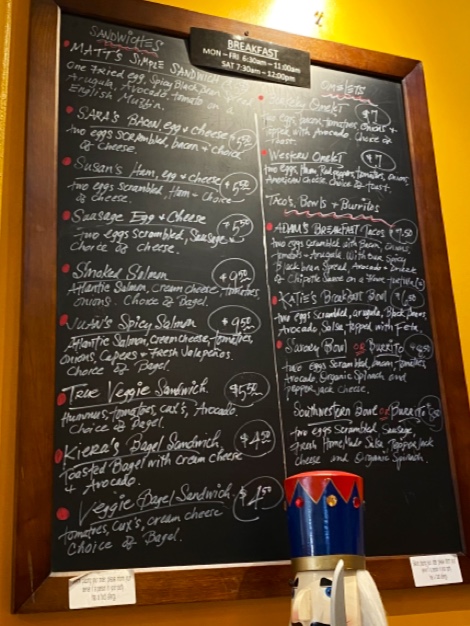 SANDWICHES
MATT'S SIMPLE SANDWICH
One Fried egg, Spicy Black Bean
Arugula, Avocado, tomato on a
English Muffin.
SARA'S BACON, egg & cheese $5.50
two eggs scrambled, bacon & choice
of cheese.
Susan's Ham, egg & cheese $5.50
two eggs scrambled, Ham & Choice
of cheese.
Sausage Egg & Cheese $5.50
two eggs scrambled, Sausage &
Choice of cheese.
Smoked Salmon $9.50
Atlantic Salmon, cream cheese, tomatoes,
onions. Choice of Bagel.
Juan's Spicy Salmon $9.50
Atlantic Salmon, Cream cheese, tomatoes,
Onions, Capers & Fresh Jalapeños.
Choice of Bagel.
True Veggie Sandwich. $5.50
Hummus, tomatoes, cux's, Avocado.
Choice of Bagel.
Kiera's Bagel Sandwich. $4.50
toasted Bagel with cream cheese
& Avocado.
Veggie Bagel Sandwich. $4.50
tomatoes, Cux's, cream cheese
Choice of Bagel.
BREAKFAST
MON – FRI 6:30am – 11:00am
SAT 7:30am – 12:00pm
OMELETS
Omelet $7
two eggs, bacon, tomatoes, onions &
topped with Avocado. Choice of
toast.
Western Omelet $7
two eggs, Ham, Red peppers, tomatoes, onions,
American cheese, choice of toast.
Taco's, Bowls & Burritos
ADAM'S BREAKFAST Tacos $7.50
two eggs scrambled with Bacon, onions,
tomatoes & Arugula. With our Spicy
Black bean Spread, Avocado &
of Chipotle Sauce on a flour tortilla
KATIE'S Breakfast Bowl
two eggs Scrambled, arugula, Black beans,
Avocado, Salsa, topped with Feta.
Savory Bowl OR Burrito
two eggs Scrambled, bacon, tomatoes,
Avocado, Organic Spinach and
pepper jack cheese.
Southwestern Bowl OR Burrito
two eggs Scrambled, Sausage,
Fresh Home Made Salsa, Pepper jack
cheese and Organic Spinach.